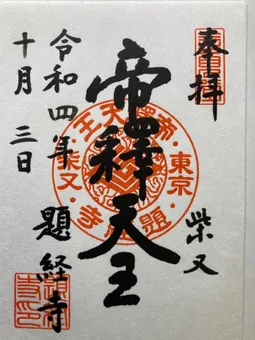 奉拝
柴又
帝釋天王
令和四年
十月三日
題経寺
帝釋天王・東京・題経寺・柴又・